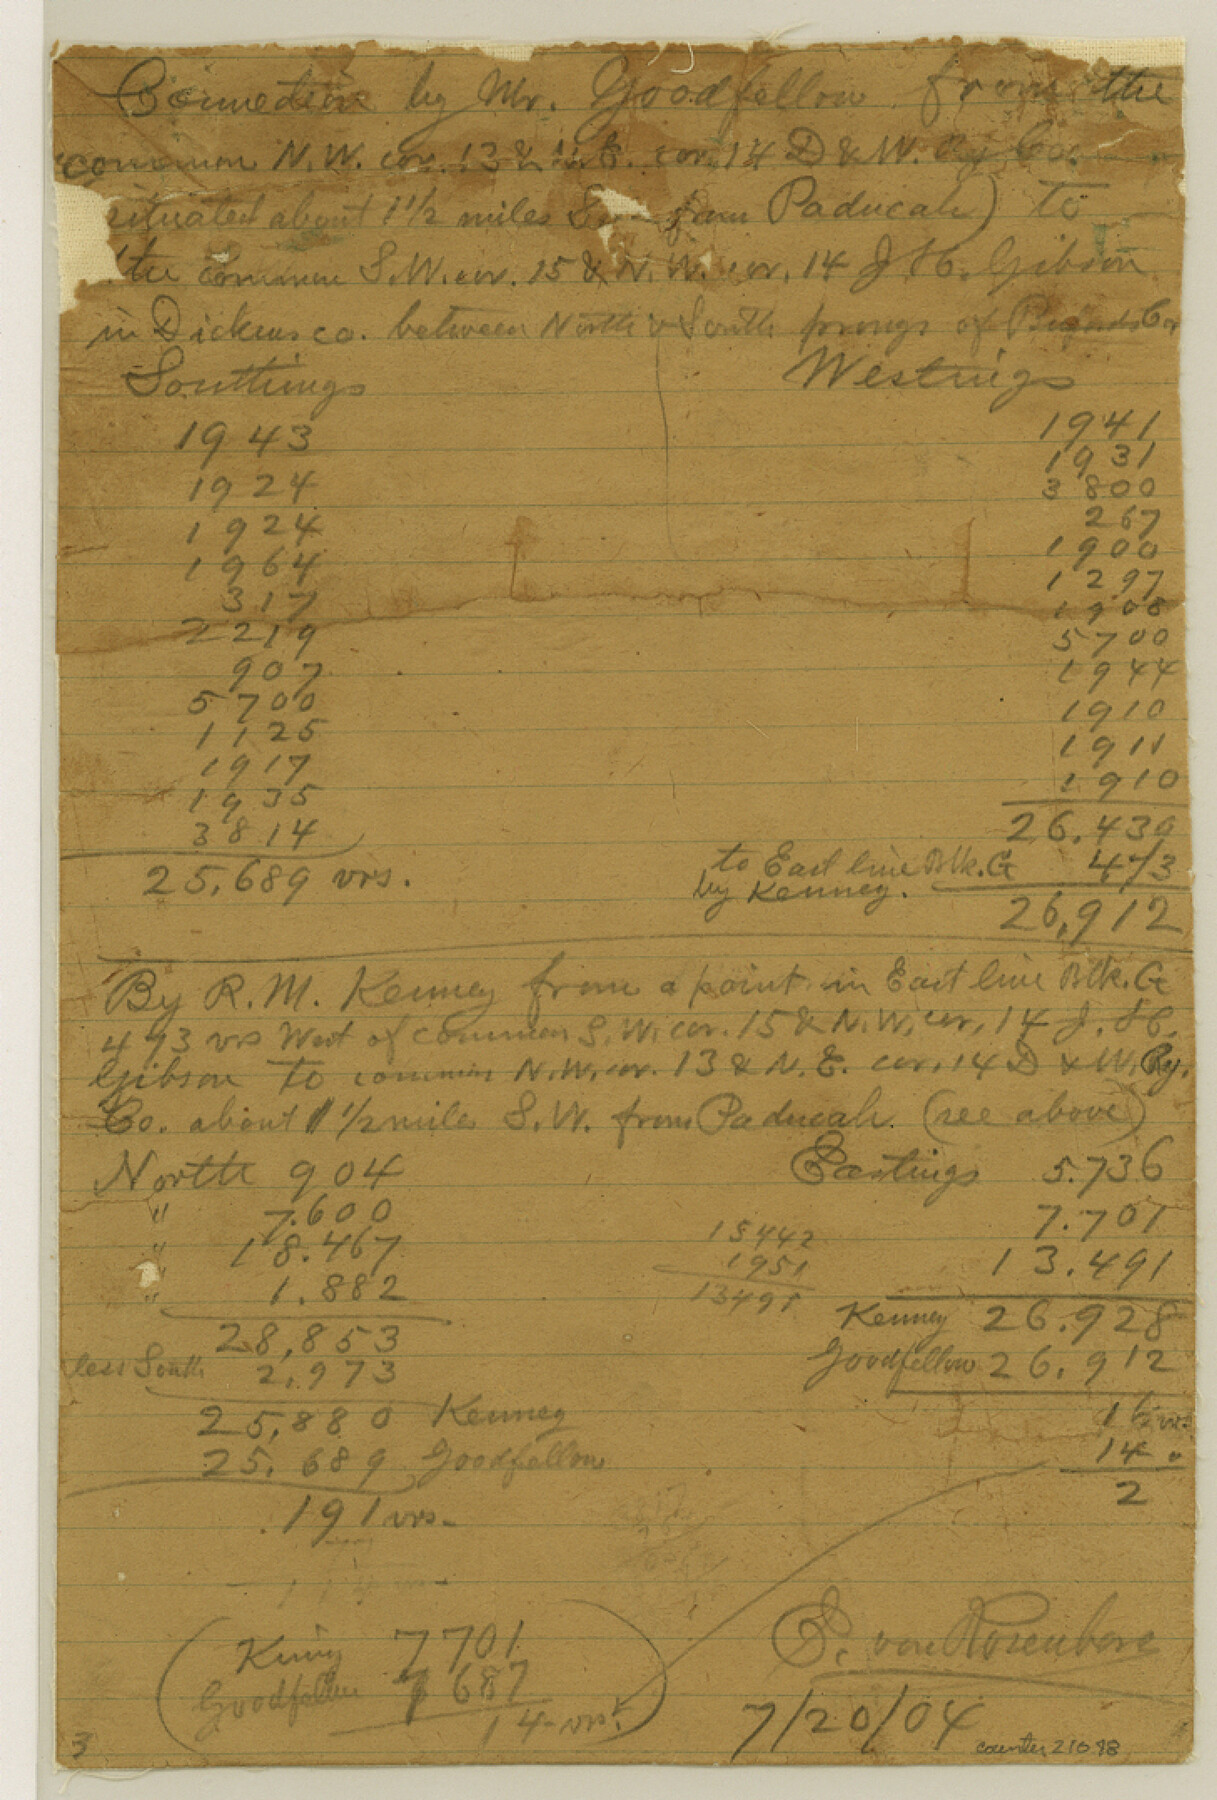 Connection by Mr. Goodfellow from the
common N.W. cor. 13 & N.E. cor. 14 D & W. Ry Co.
situated about 1 1/2 miles from Paducah) to
the common S.W. cor. 15 & N.W. cor. 14 J. H. Gibson
in Dickens co. between North & South prongs of
Southings Westings
1943 1941
1924 1931
1924 3800
1964 267
317 1900
2219 1297
907 1908
5700 5700
1125 1944
1917 1910
1935 1911
3814 1910
25,689 vrs. 26,439
to East line Blk. G 473
by Kenney.
26,912
By R. M. Kenney from a point in East line Blk. G
473 vrs West of common S.W. cor. 15 & N.W. cor. 14 J. H.
Gibson to common N.W. cor. 13 & N.E. cor. 14 D & W. Ry.
Co. about 1 1/2 mile S.W. from Paducah. (see above)
North 904 Eastings 5.736
" 7.600 7.701
" 18.467 13.491
" 1.882
15442
1951
13491
28,853 Kenney 26.928
less South 2,973 Goodfellow 26.912
25,880 Kenney 16 vrs
25,689 Goodfellow 14 "
191 vrs. 2
7701
Goodfellow 7687
14 vrs.
S. von Rosenberg
7/20/04
3
counter 21098